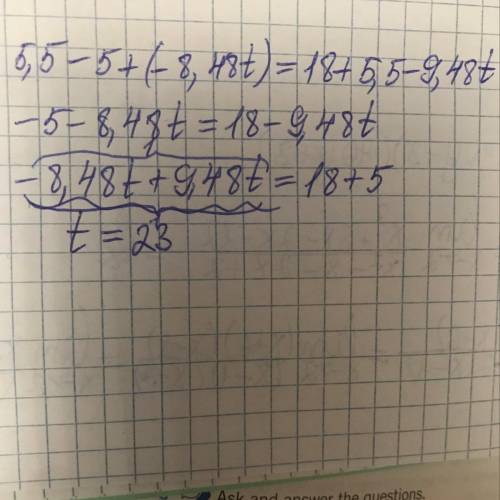 5,5-5+(-8,48t)=18+5,5-9,48t
-5-8,48t=18-9,48t
-8,48t+9,48t=18+5
t=23
Ask and answer the questions.